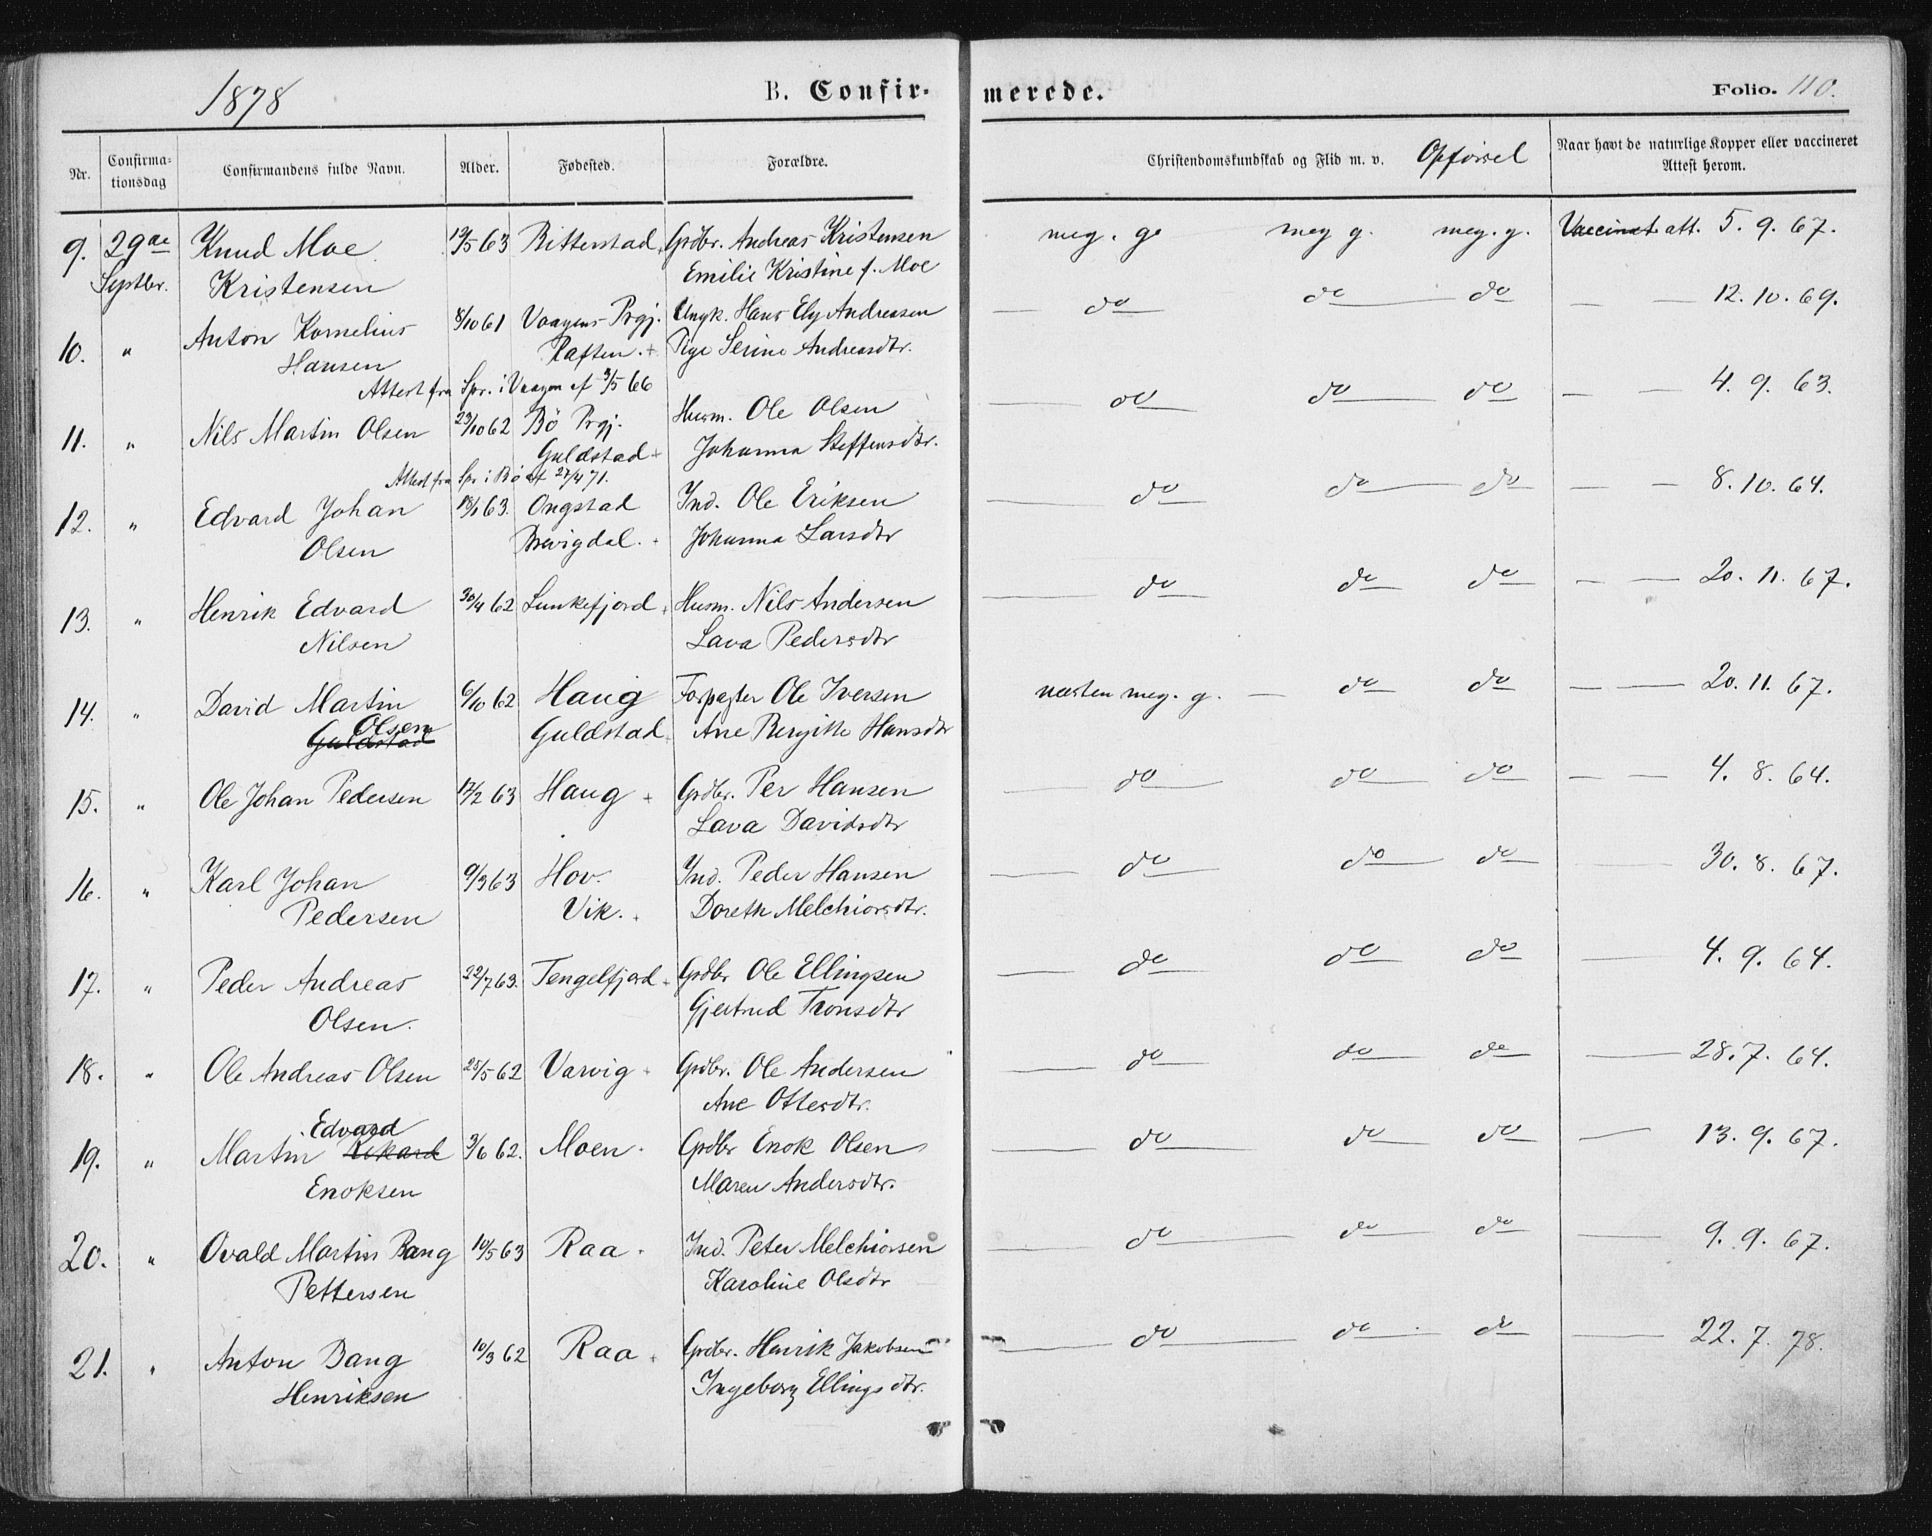 1878 B. Confir- merede. Folio. 110.
Nr. Confirma-tionsdag Confirmandens fulde Navn. Alder. Fødested. Forældre. Christendomskundskab og Flid m. v. Opførsel Naar havt de naturlige Kopper eller vaccineret Attest herom.
9. 29de Knud Moe 19/5 63 Ritterstad Grdbr. Andreas Kristensen meg. g. meg g. meg. g. Vaccinat. att. 5. 9. 67.
Septbr. Kristensen Emilie Kristine f. Moe
10. " Anton Kornelius 8/10 61 Vaagens Prgj. Ungk. Hans Ely Andreasen do do do 12. 10. 69.
Hansen Raften. + Pige Serine Andreasdtr.
Attest fra Spr. i Vaagen af 3/5 66
11. " Nils Martin Olsen 23/10 62 Bø Prgj. Husm. Ole Olsen do do do 4. 9. 63.
Guldstad + Johanna Steffensdtr.
Attest fra Spr i Bø af 27/4 71.
12. " Edvard Johan 18/1 63. Ongstad Ind. Ole Eriksen do do do 8. 10. 64.
Olsen Brevigdal. Johanna Larsdtr
13. " Henrik Edvard 30/4 62 Lunkefjord Husm. Nils Andersen do do do 20. 11. 67.
Nilsen Lava Pedersdtr
14. " David Martin 6/10 62 Haug Forpagter Ole Iversen næsten meg. g. do do 20. 11. 67.
Olsen
Guldstad Guldstad Ane Bergitte Hansdtr
15. " Ole Johan Pedersen 17/2 63 Haug + Grdbr. Per Hansen do do do 4. 8. 64.
Lava Davidsdtr
16. " Karl Johan 9/3 63 Hov. Ind. Peder Hansen do do do 30. 8. 67.
Pedersen Vik. Doreth Melchiorsdtr.
17. " Peder Andreas 22/7 63. Tengelfjord Grdbr Ole Ellingsen do do do 4. 9. 64.
Olsen. Gjertrud Tronsdtr
18. " Ole Andreas Olsen 25/5 62 Varvig Grdbr. Ole Andersen do do do 28. 7. 64.
Ane Ottersdtr.
Edvard
19. " Martin Rikard 3/6 62. Moen Grdbr Enok Olsen do do do 13. 9. 67.
Enoksen Maren Andersdtr.
20. " Ovald Martin Bang 10/5 63 Raa Ind. Peter Melchiorsen do do do 9. 9. 67.
Pettersen Karoline Olsdtr
21. " Anton Bang 10/3 62 Raa Grdbr. Henrik Jakobsen do do do 22. 7. 78.
Henriksen Ingeborg Ellingsdtr.